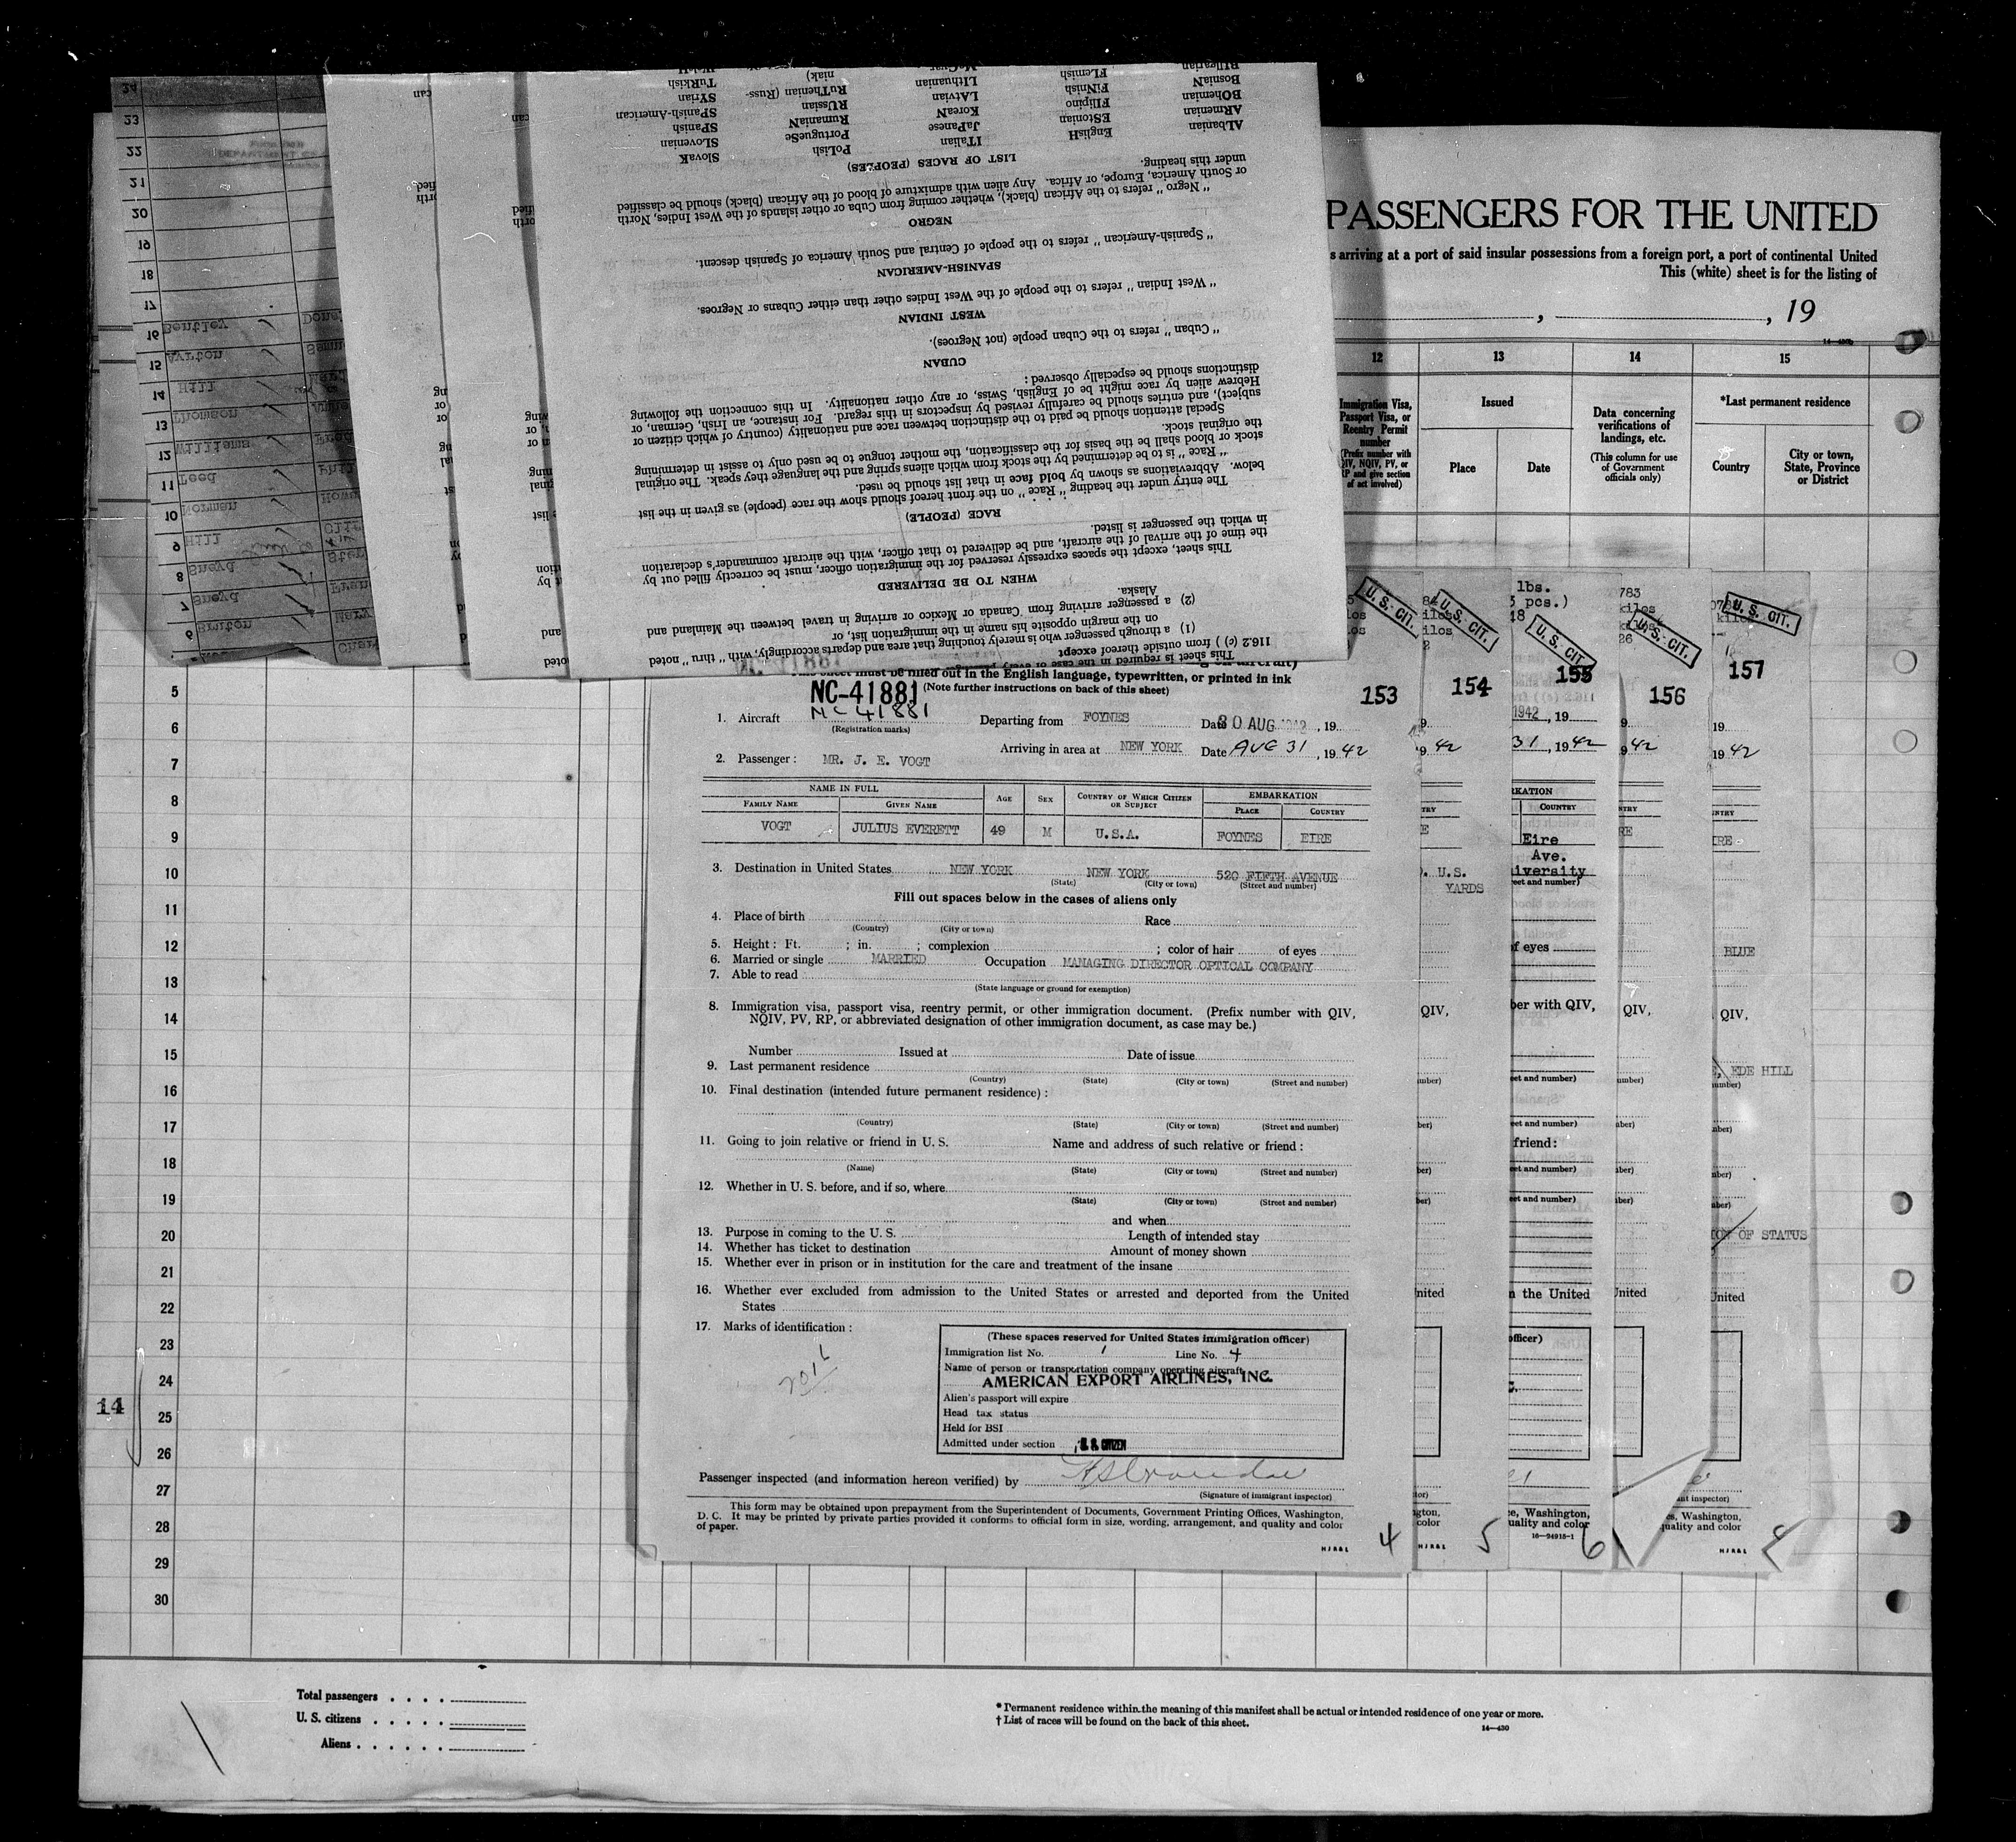 PASSENGERS FOR THE UNITED
s arriving at a port of said insular possessions from a foreign port, a port of continental United
This (white) sheet is for the listing of
, , 19
12 13 14 15
Immigration Visa, Passport Visa, or Reentry Permit number
Issued
Place Date
Data concerning verifications of landings, etc.
(This column for use of Government officials only)
*Last permanent residence
Country
City or town, State, Province or District
24
23
22
21
20
19
18
17
16 Bentley
15 Ayrton
14 Hill
13 Thomson
12 Williams
11 Teed
10 Norman
9 Hill
8 Sneyd
7 Sneyd
6 Bruton Mary
This sheet is required in the case of every
116.2 (c) ) from outside thereof except
(1) a through passenger who is merely touching that area and departs accordingly, with "thru" noted
on the margin opposite his name in the immigration list, or
(2) a passenger arriving from Canada or Mexico or arriving in travel between the Mainland and
Alaska.
WHEN TO BE DELIVERED
This sheet, except the spaces expressly reserved for the immigration officer, must be correctly filled out by
the time of the arrival of the aircraft, and be delivered to that officer, with the aircraft commander's declaration
in which the passenger is listed.
RACE (PEOPLE)
The entry under the heading "Race" on the front hereof should show the race (people) as given in the list
below. Abbreviations as shown by bold face in that list should be used.
"Race" is to be determined by the stock from which aliens spring and the language they speak. The original
stock or blood shall be the basis for the classification, the mother tongue to be used only to assist in determining
the original stock.
Special attention should be paid to the distinction between race and nationality (country of which citizen or
subject), and entries should be carefully revised by inspectors in this regard. For instance, an Irish, German, or
Hebrew alien by race might be of English, Swiss, or any other nationality. In this connection the following
distinctions should be especially observed:
CUBAN
"Cuban" refers to the Cuban people (not Negroes).
WEST INDIAN
"West Indian" refers to the people of the West Indies other than either Cubans or Negroes.
SPANISH-AMERICAN
"Spanish-American" refers to the people of Central and South America of Spanish descent.
NEGRO
"Negro" refers to the African (black), whether coming from Cuba or other islands of the West Indies, North
or South America, Europe, or Africa. Any alien with admixture of blood of the African (black) should be classified
under this heading.
LIST OF RACES (PEOPLES)
ALbanian EnglisH ITalian PoLish SlovaK
ARmenian EStonian JaPanese PortugueSe SLOvenian
BOhemian FIlipino KoreaN RumaniaN SPanish
BosniaN FiNniſh LAtvian RUSsian SPanish-American
BUlgarian FLemish LIthuanian RuThenian (Russ- SYrian
niak) TuRKish
This sheet must be filled out in the English language, typewritten, or printed in ink
NC-41881 (Note further instructions on back of this sheet)
1. Aircraft NC-41881 Departing from FOYNES Date 30 AUG 1942, 19
(Registration marks)
Arriving in area at NEW YORK Date AUG 31, 1942
2. Passenger: MR. J. E. VOGT
NAME IN FULL AGE SEX COUNTRY OF WHICH CITIZEN OR SUBJECT EMBARKATION
FAMILY NAME GIVEN NAME PLACE COUNTRY
VOGT JULIUS EVERETT 49 M U.S.A. FOYNES EIRE
3. Destination in United States NEW YORK NEW YORK 520 FIFTH AVENUE
(State) (City or town) (Street and number)
Fill out spaces below in the cases of aliens only
4. Place of birth Race
(Country) (City or town)
5. Height: Ft. ; in. ; complexion ; color of hair of eyes
6. Married or single MARRIED Occupation MANAGING DIRECTOR OPTICAL COMPANY
7. Able to read
(State language or ground for exemption)
8. Immigration visa, passport visa, reentry permit, or other immigration document. (Prefix number with QIV,
NQIV, PV, RP, or abbreviated designation of other immigration document, as case may be.)
Number Issued at Date of issue
9. Last permanent residence
(Country) (State) (City or town) (Street and number)
10. Final destination (intended future permanent residence):
(Country) (State) (City or town) (Street and number)
11. Going to join relative or friend in U. S. Name and address of such relative or friend:
(Name) (State) (City or town) (Street and number)
12. Whether in U. S. before, and if so, where
(State) (City or town) (Street and number)
and when
13. Purpose in coming to the U. S. Length of intended stay
14. Whether has ticket to destination Amount of money shown
15. Whether ever in prison or in institution for the care and treatment of the insane
16. Whether ever excluded from admission to the United States or arrested and deported from the United
States
17. Marks of identification:
(These spaces reserved for United States immigration officer)
Immigration list No. 1 Line No. 4
Name of person or transportation company operating aircraft
AMERICAN EXPORT AIRLINES, INC.
Alien's passport will expire
Head tax status
Held for BSI
Admitted under section U. S. CITIZEN
Passenger inspected (and information hereon verified) by
(Signature of immigrant inspector)
This form may be obtained upon prepayment from the Superintendent of Documents, Government Printing Offices, Washington,
D. C. It may be printed by private parties provided it conforms to official form in size, wording, arrangement, and quality and color
of paper.
4
153 154 155 156 157
U. S. CIT. U. S. CIT. U. S. CIT. U. S. CIT. U. S. CIT.
lbs.
5 pcs.)
783
kilos
26
1942, 19
31, 1942
1942
COUNTRY
Eire
Ave.
iversity
U.S.
YARDS
of eyes
BLUE
ber with QIV,
QIV,
EDE HILL
friend:
ON OF STATUS
n the United
officer)
ce, Washington,
uality and color
16—24915-1
5 6
5
6
7
8
9
10
11
12
13
14
15
16
17
18
19
20
21
22
23
24
14
25
26
27
28
29
30
Total passengers
U. S. citizens
Aliens
* Permanent residence within the meaning of this manifest shall be actual or intended residence of one year or more.
† List of races will be found on the back of this sheet.
14—430